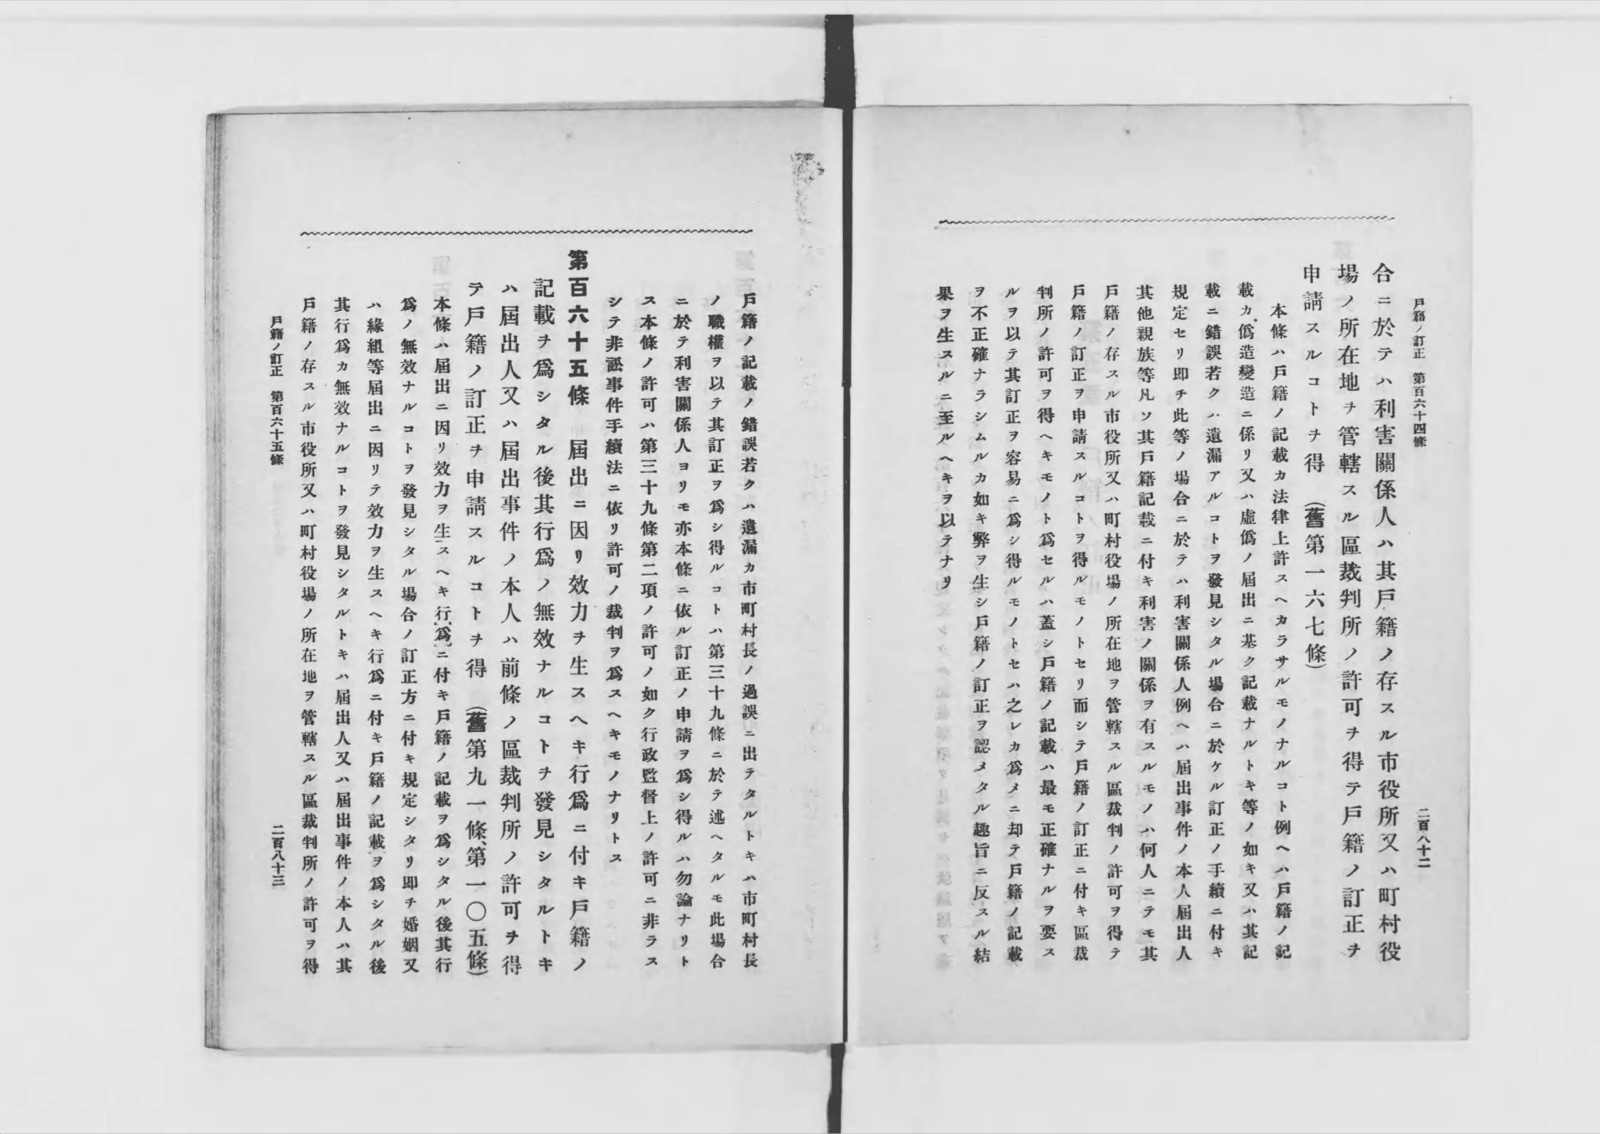 戶籍ノ訂正 第百六十四條 二百八十二
合ニ於テハ利害關係人ハ其戶籍ノ存スル市役所又ハ町村役
場ノ所在地ヲ管轄スル區裁判所ノ許可ヲ得テ戶籍ノ訂正ヲ
申請スルコトヲ得 (舊第一六七條)
本條ハ戶籍ノ記載カ法律上許スヘカラサルモノナルコト例ヘハ戶籍ノ記
載カ僞造變造ニ係リ又ハ虛僞ノ屆出ニ基ク記載ナルトキ等ノ如キ又ハ其記
載ニ錯誤若クハ遺漏アルコトヲ發見シタル場合ニ於ケル訂正ノ手續ニ付キ
規定セリ卽チ此等ノ場合ニ於テハ利害關係人例ヘハ屆出事件ノ本人屆出人
其他親族等凡ソ其戶籍記載ニ付キ利害ノ關係ヲ有スルモノハ何人ニテモ其
戶籍ノ存スル市役所又ハ町村役場ノ所在地ヲ管轄スル區裁判ノ許可ヲ得テ
戶籍ノ訂正ヲ申請スルコトヲ得ルモノトセリ而シテ戶籍ノ訂正ニ付キ區裁
判所ノ許可ヲ得ヘキモノト爲セルハ蓋シ戶籍ノ記載ハ最モ正確ナルヲ要ス
ルヲ以テ其訂正ヲ容易ニ爲シ得ルモノトセハ之レカ爲メニ却テ戶籍ノ記載
ヲ不正確ナラシムルカ如キ弊ヲ生シ戶籍ノ訂正ヲ認メタル趣旨ニ反スル結
果ヲ生スルニ至ルヘキヲ以テナリ
戶籍ノ記載ノ錯誤若クハ遺漏カ市町村長ノ過誤ニ出テタルトキハ市町村長
ノ職權ヲ以テ其訂正ヲ爲シ得ルコトハ第三十九條ニ於テ述ヘタルモ此場合
ニ於テ利害關係人ヨリモ亦本條ニ依ル訂正ノ申請ヲ爲シ得ルハ勿論ナリト
ス本條ノ許可ハ第三十九條第二項ノ許可ノ如ク行政監督上ノ許可ニ非ラス
シテ非訟事件手續法ニ依リ許可ノ裁判ヲ爲スヘキモノナリトス
第百六十五條 屆出ニ因リ效力ヲ生スヘキ行爲ニ付キ戶籍ノ
記載ヲ爲シタル後其行爲ノ無效ナルコトヲ發見シタルトキ
ハ屆出人又ハ屆出事件ノ本人ハ前條ノ區裁判所ノ許可ヲ得
テ戶籍ノ訂正ヲ申請スルコトヲ得 (舊第九一條、第一〇五條)
本條ハ屆出ニ因リ效力ヲ生スヘキ行爲ニ付キ戶籍ノ記載ヲ爲シタル後其行
爲ノ無效ナルコトヲ發見シタル場合ノ訂正方ニ付キ規定シタリ卽チ婚姻又
ハ緣組等屆出ニ因リテ效力ヲ生スヘキ行爲ニ付キ戶籍ノ記載ヲ爲シタル後
其行爲カ無效ナルコトヲ發見シタルトキハ屆出人又ハ屆出事件ノ本人ハ其
戶籍ノ存スル市役所又ハ町村役場ノ所在地ヲ管轄スル區裁判所ノ許可ヲ得
戶籍ノ訂正 第百六十五條 二百八十三